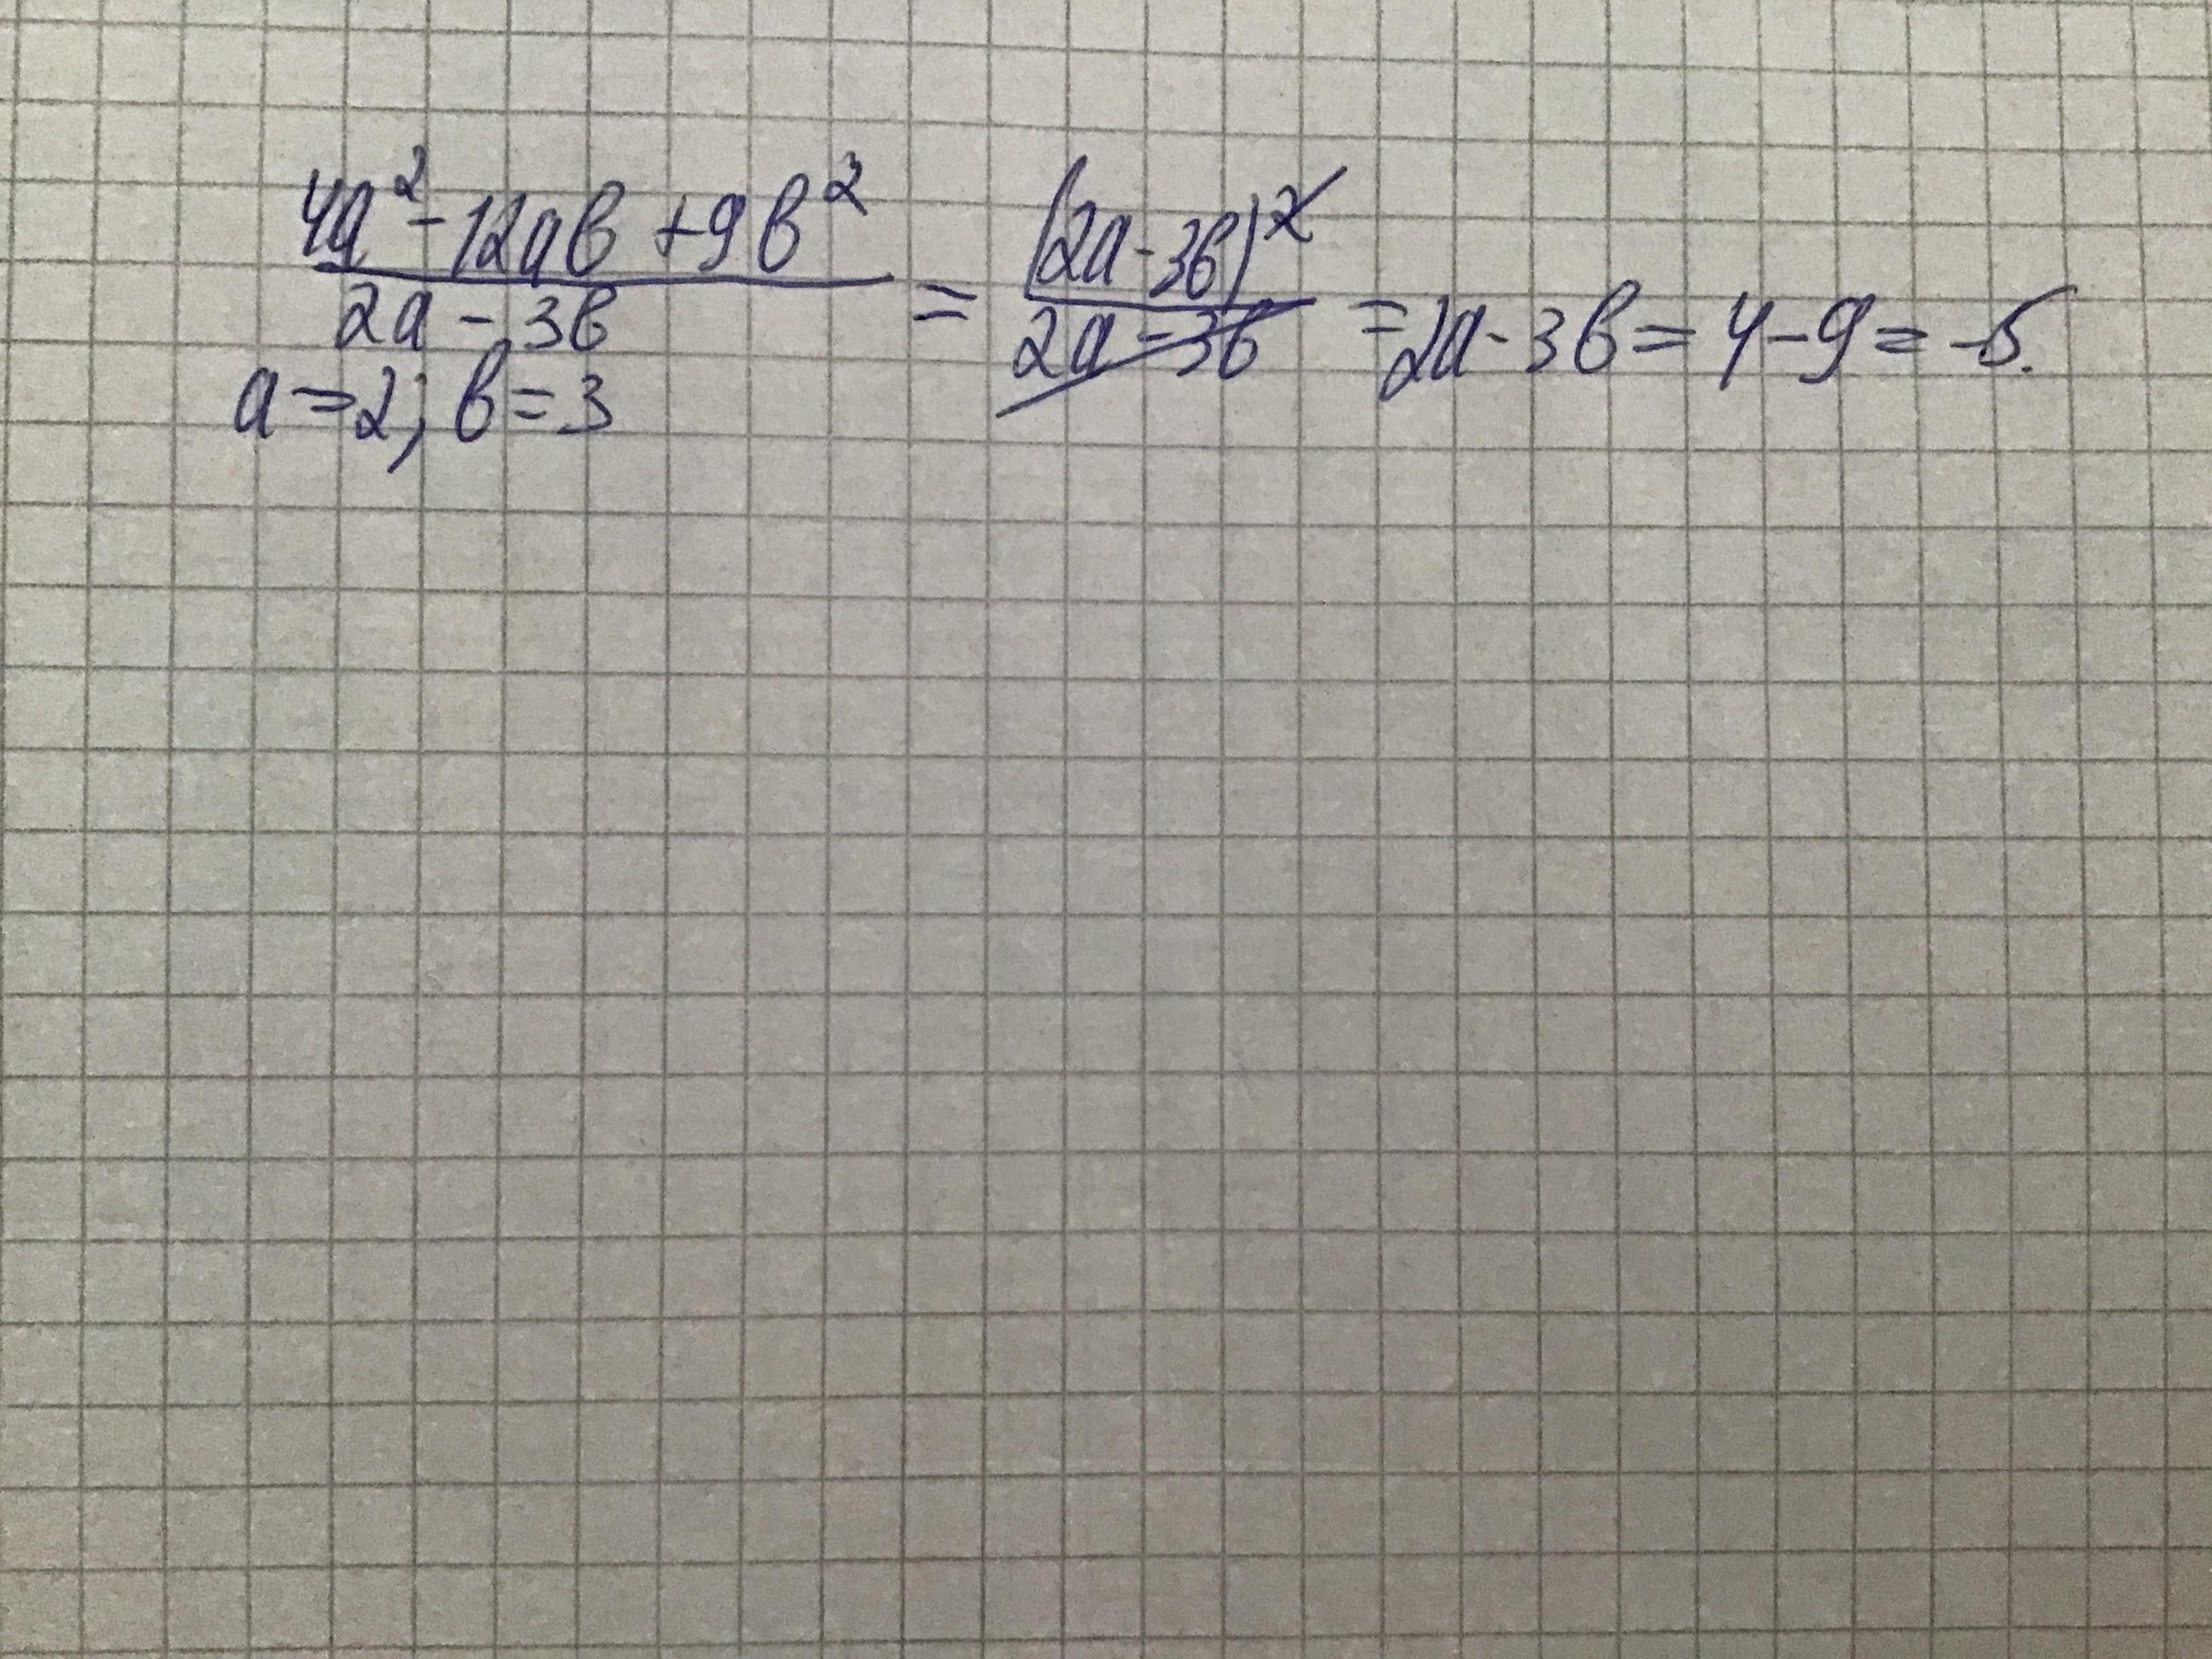 4a² - 12ab + 9b² / 2a - 3b = (2a - 3b)² / 2a - 3b = 2a - 3b = 4 - 9 = -5.
a = 2; b = 3